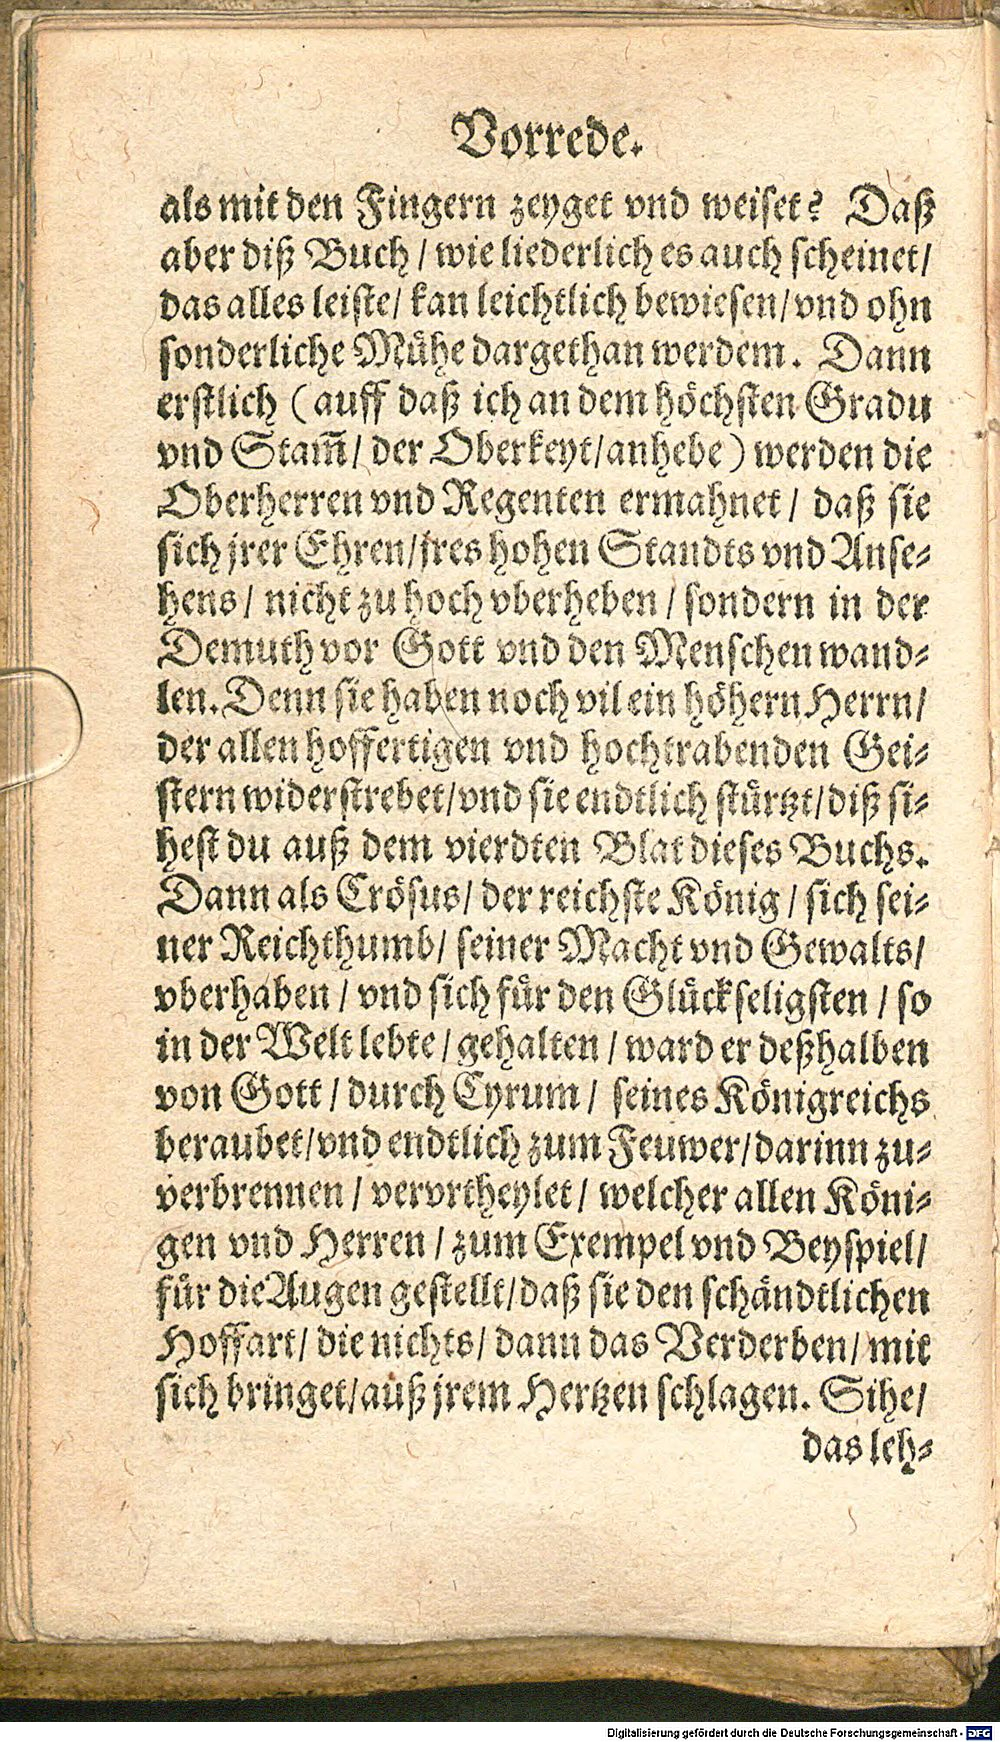 Vorrede.
als mit den Fingern zeyget vnd weiset? Daß
aber diß Buch / wie liederlich es auch scheinet /
das alles leiste / kan leichtlich bewiesen / vnd ohn
sonderliche Mühe dargethan werdem. Dann
erstlich (auff daß ich an dem höchsten Gradu
vnd Stam̃ / der Oberkeyt / anhebe) werden die
Oberherren vnd Regenten ermahnet / daß sie
sich jrer Ehren / jres hohen Standts vnd Anse-
hens / nicht zu hoch vberheben / sondern in der
Demuth vor Gott vnd den Menschen wand-
len. Denn sie haben noch vil ein höhern Herrn /
der allen hoffertigen vnd hochtrabenden Gei-
stern widerstrebet / vnd sie endtlich stürtzt / diß si-
hest du auß dem vierdten Blat dieses Buchs.
Dann als Crösus / der reichste König / sich sei-
ner Reichthumb / seiner Macht vnd Gewalts /
vberhaben / vnd sich für den Glückseligsten / so
in der Welt lebte / gehalten / ward er deßhalben
von Gott / durch Cyrum / seines Königreichs
beraubet / vnd endtlich zum Feuwer / darinn zu-
verbrennen / vervrtheylet / welcher allen Köni-
gen vnd Herren / zum Exempel vnd Beyspiel /
für die Augen gestellt / daß sie den schändtlichen
Hoffart / die nichts / dann das Verderben / mit
sich bringet / auß jrem Hertzen schlagen. Sihe /
das leh-
Digitalisierung gefördert durch die Deutsche Forschungsgemeinschaft - DFG